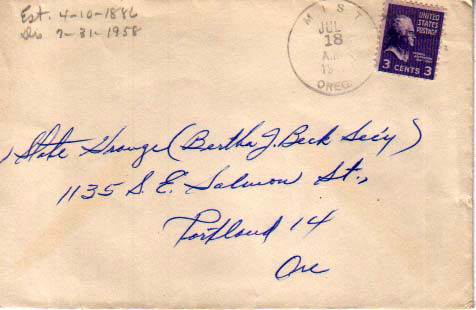 Est. 4-10-1886
Dis 7-31-1958
MIST
JUL
18
A.M.
OREG.
UNITED
STATES
POSTAGE
3 CENTS 3
State Grange (Bertha J. Beck Sec'y)
1135 S.E. Salmon St.,
Portland 14
Ore